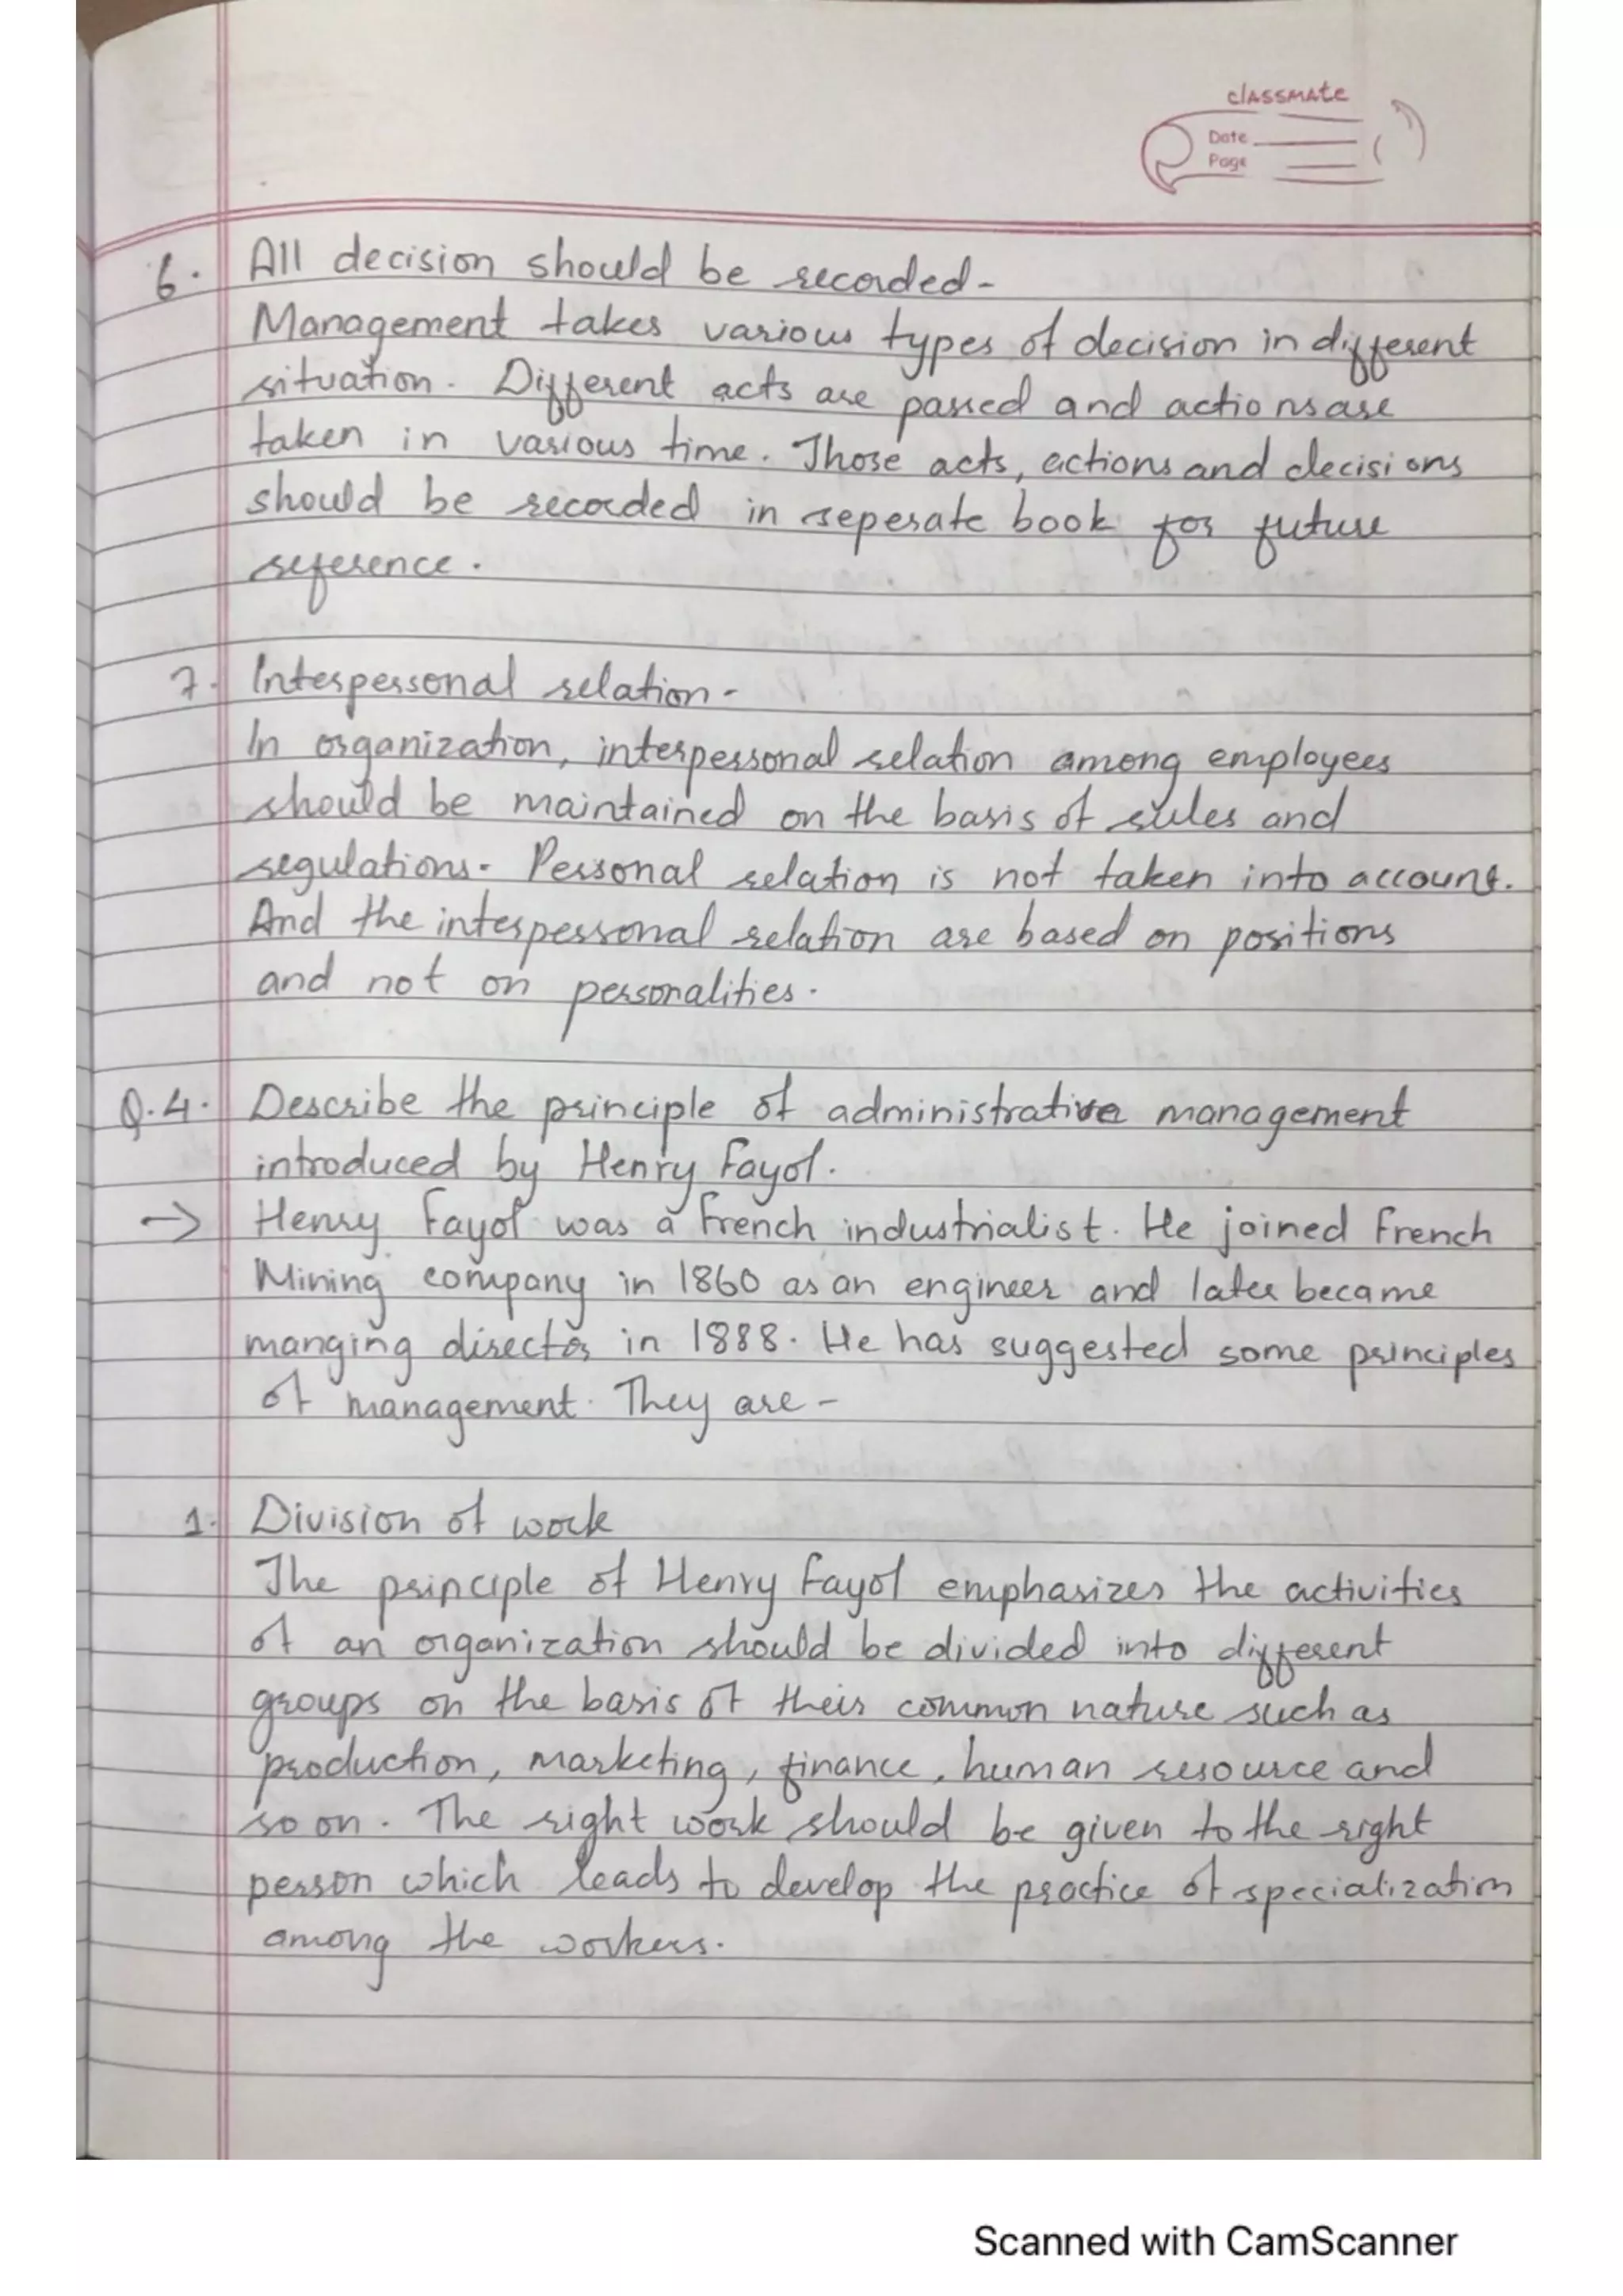 classmate
Date
Page
6. All decision should be recorded-
Management takes various types of decision in different
situation. Different acts are passed and actions are
taken in various time. Those acts, actions and decisions
should be recorded in seperate book for future
reference.
7. Interpersonal relation-
In organization, interpersonal relation among employees
should be maintained on the basis of rules and
regulations. Personal relation is not taken into account.
And the interpersonal relation are based on positions
and not on personalities.
Q.4. Describe the principle of administrative management
introduced by Henry Fayol.
→ Henry Fayol was a French industrialist. He joined French
Mining company in 1860 as an engineer and later became
manging director in 1888. He has suggested some principles
of management. They are -
1. Division of work
The principle of Henry Fayol emphasizes the activities
of an organization should be divided into different
groups on the basis of their common nature such as
production, marketing, finance, human resource and
so on. The right work should be given to the right
person which leads to develop the practice of specialization
among the workers.
Scanned with CamScanner